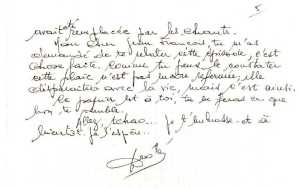 5
avait été remplacée par les chants.
Mon cher Jean François, tu m'as
demandé de te relater cette épisode c'est
chose faite. Comme tu peux le constater
cette plaie n'est pas encore refermée, elle
disparaitra avec la vie, mais c'est ainsi.
Ce papier est à toi, tu en feras ce que
bon te semble.
Allez, tchao... je t'embrasse et à
bientôt je l'espère..